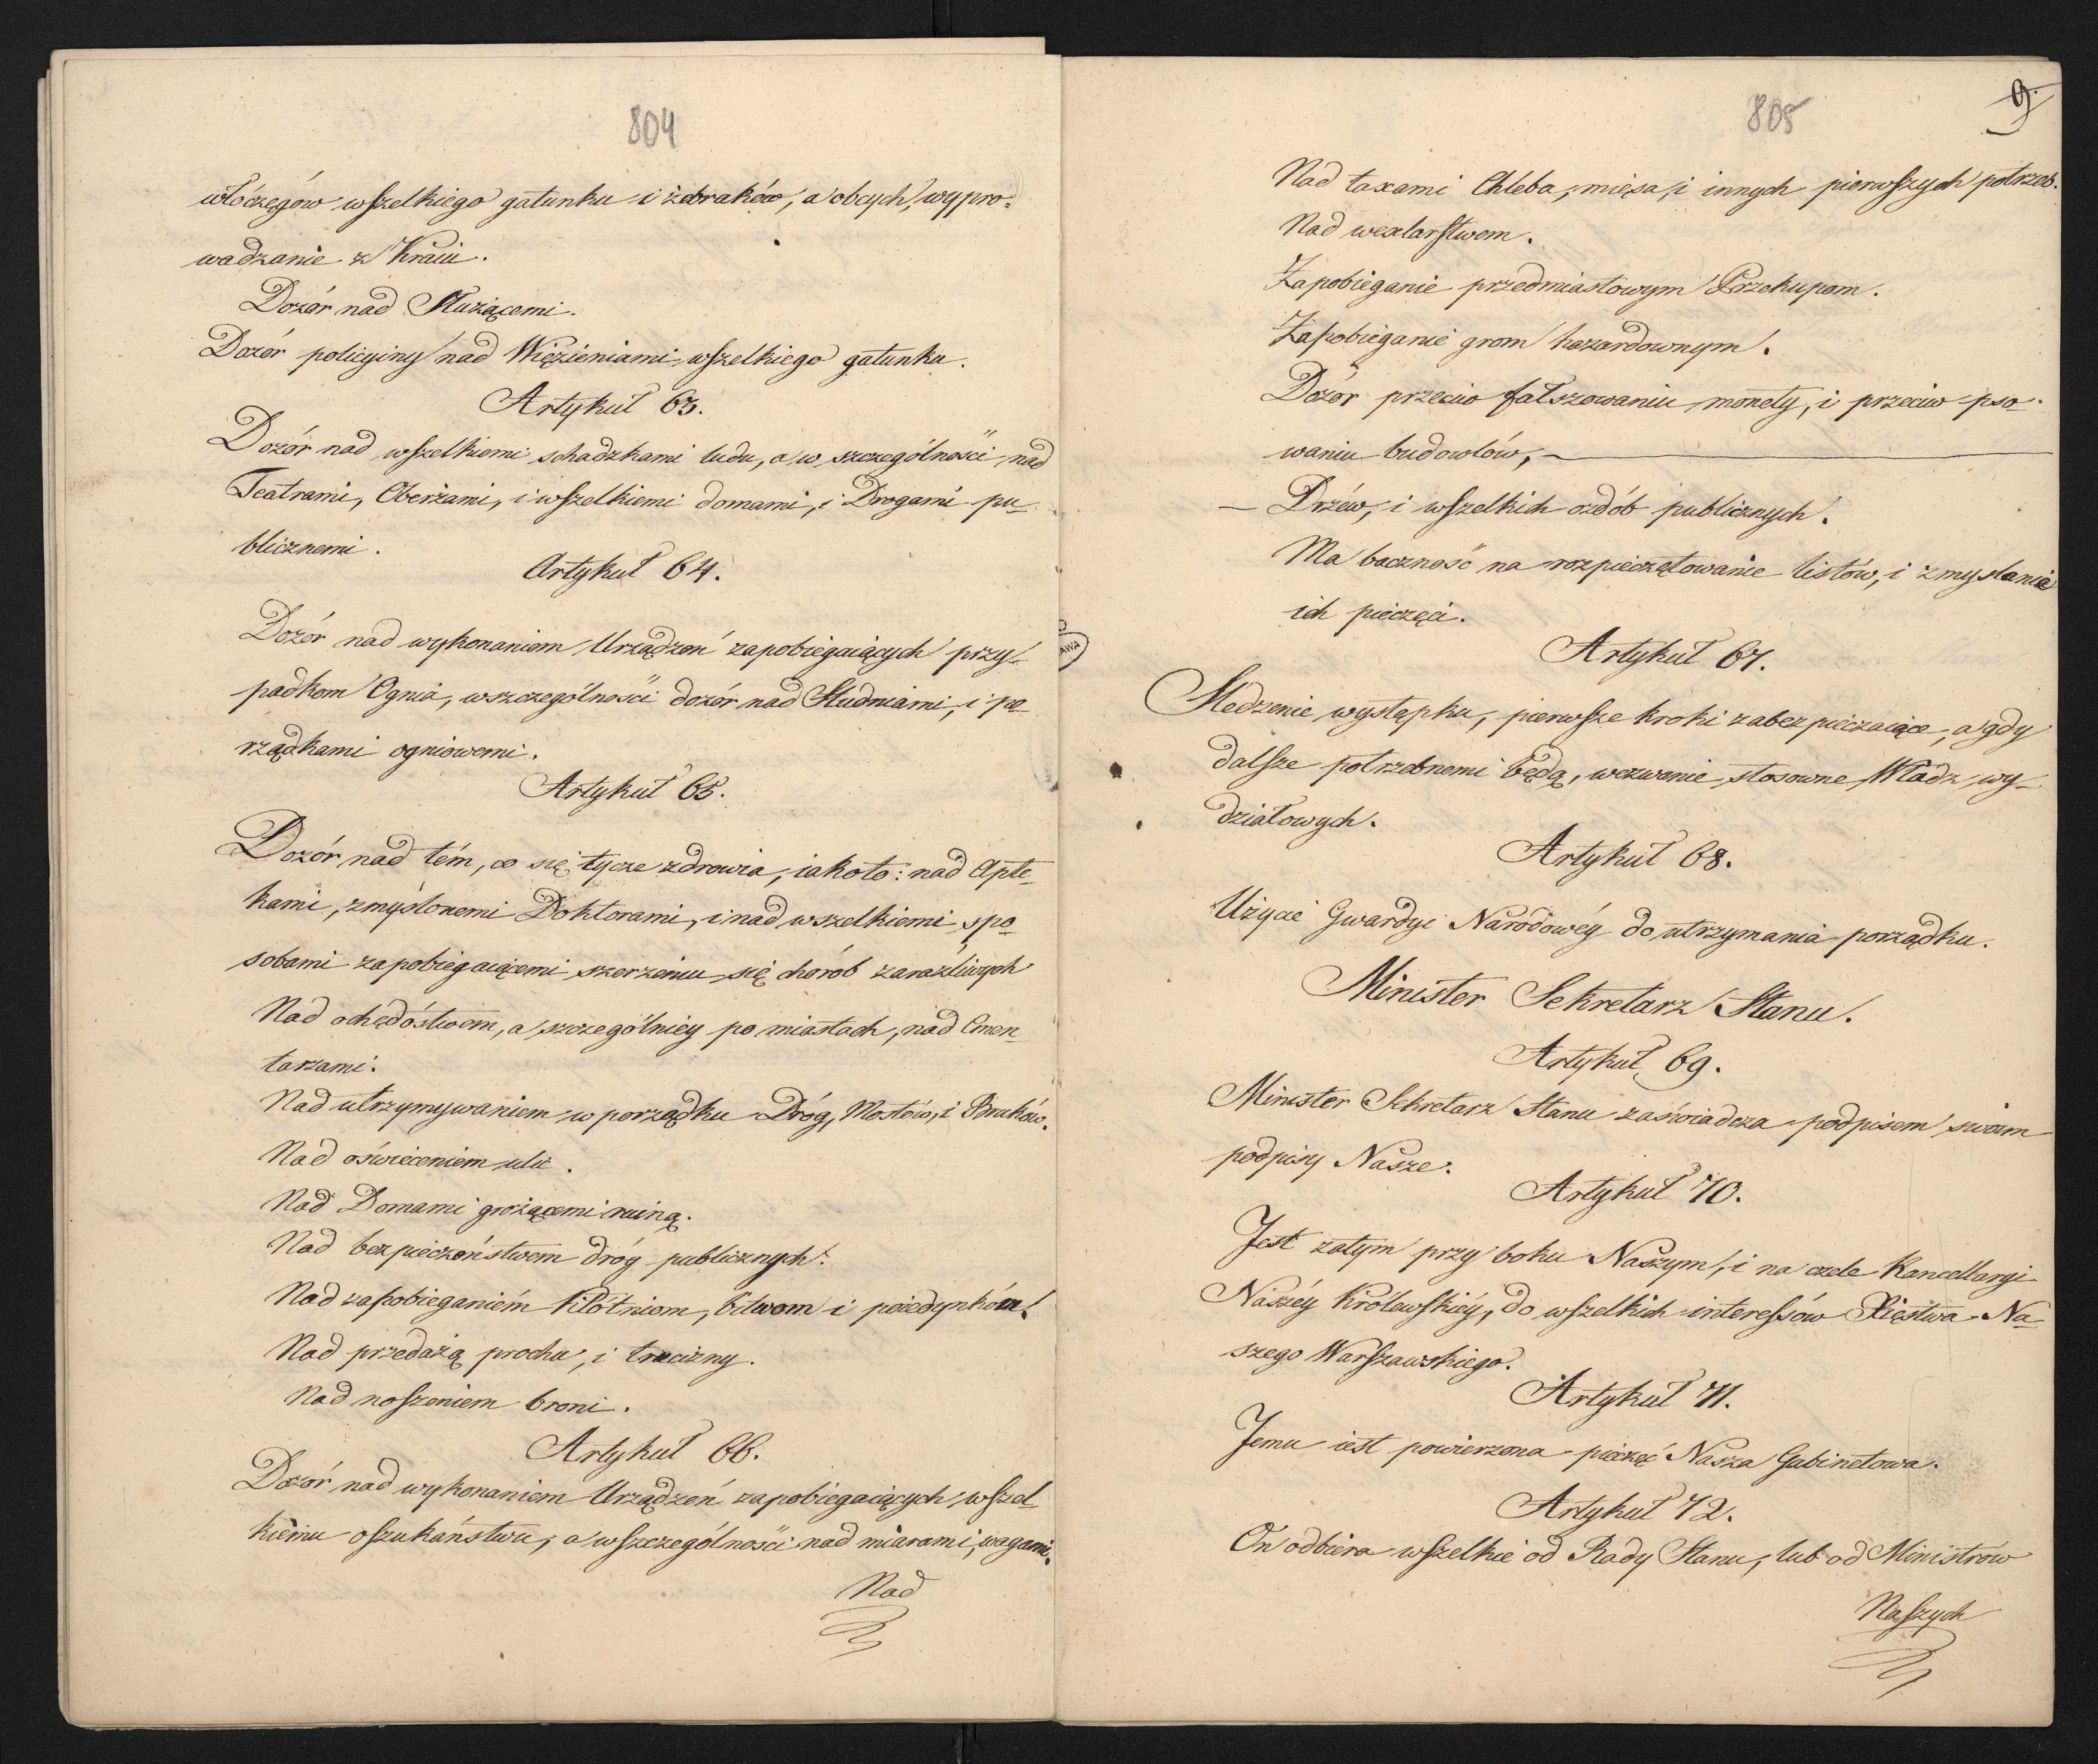 804
włóczęgów wszelkiego gatunku i żebraków, a obcych, wypro=
wadzanie z Kraiu.
Dozór nad Służącemi.
Dozór policyiny nad Więzieniami wszelkiego gatunku.
Artykuł 63.
Dozór nad wszelkiemi schadzkami ludu, a w szczególności nad
Teatrami, Oberżami, i wszelkiemi domami, i Drogami pu-
blicznemi.
Artykuł 64.
Dozór nad wykonaniem Urządzeń zapobiegaiących przy-
padkom Ognia, wszczególności dozór nad Studniami, i po-
rządkami ogniowemi.
Artykuł 65.
Dozór nad tém, co się tycze zdrowia, iakoto: nad Apte-
kami, zmyślonemi Doktorami, i nad wszelkiemi spo-
sobami zapobiegaiącemi szerzeniu się chorób zaraźliwych
Nad ochędóstwem, a szczególniey po miastach, nad Cmen-
tarzami.
Nad utrzymywaniem w porządku Dróg, Mostów, i Bruków.
Nad oświeceniem ulic.
Nad Domami grożącemi ruiną.
Nad bezpieczeństwem dróg publicznych.
Nad zapobieganiem kłótniom, bitwom i poiedynkóm.
Nad przedażą prochu, i trucizny.
Nad noszeniem broni.
Artykuł 66.
Dozór nad wykonaniem Urządzeń zapobiegaiących wszel-
kiemu oszukaństwu, a wszczególności nad miarami, wagami.
Nad
805
9
Nad taxami Chleba, mięsa, i innych pierwszych potrzeb.
Nad wexlarstwem.
Zapobieganie przedmiastowym Przekupom.
Zapobieganie grom hazardownym.
Dozór przeciw fałszowaniu monety, i przeciw pso-
waniu budowlów,
— Drzéw, i wszelkich ozdób publicznych.
Ma baczność na rozpieczętowanie listów, i zmyslania
ich pieczęci.
Artykuł 67.
Sledzenie występku, pierwsze kroki zabezpieczaiące, a gdy
dalsze potrzebnemi będą, wezwanie stosowne Władz wy-
działowych.
Artykuł 68.
Użycie Gwardyi Narodowéy do utrzymania porządku.
Minister Sekretarz Stanu.
Artykuł 69.
Minister Sekretarz Stanu zaświadcza podpisem swoim
podpisy Nasze.
Artykuł 70.
Jest zatym przy boku Naszym, i na czele Kancellaryi
Naszéy Królewskiéy, do wszelkich interessów Xięstwa Na-
szego Warszawskiego.
Artykuł 71.
Jemu iest powierzona pieczęć Nasza Gabinetowa.
Artykuł 72.
On odbiera wszelkie od Rady Stanu, lub od Ministrów
Naszych